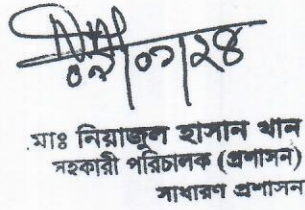 ০৯/০১/২৪
মাঃ নিয়াজুল হাসান খান
সহকারী পরিচালক (প্রশাসন)
সাধারণ প্রশাসন